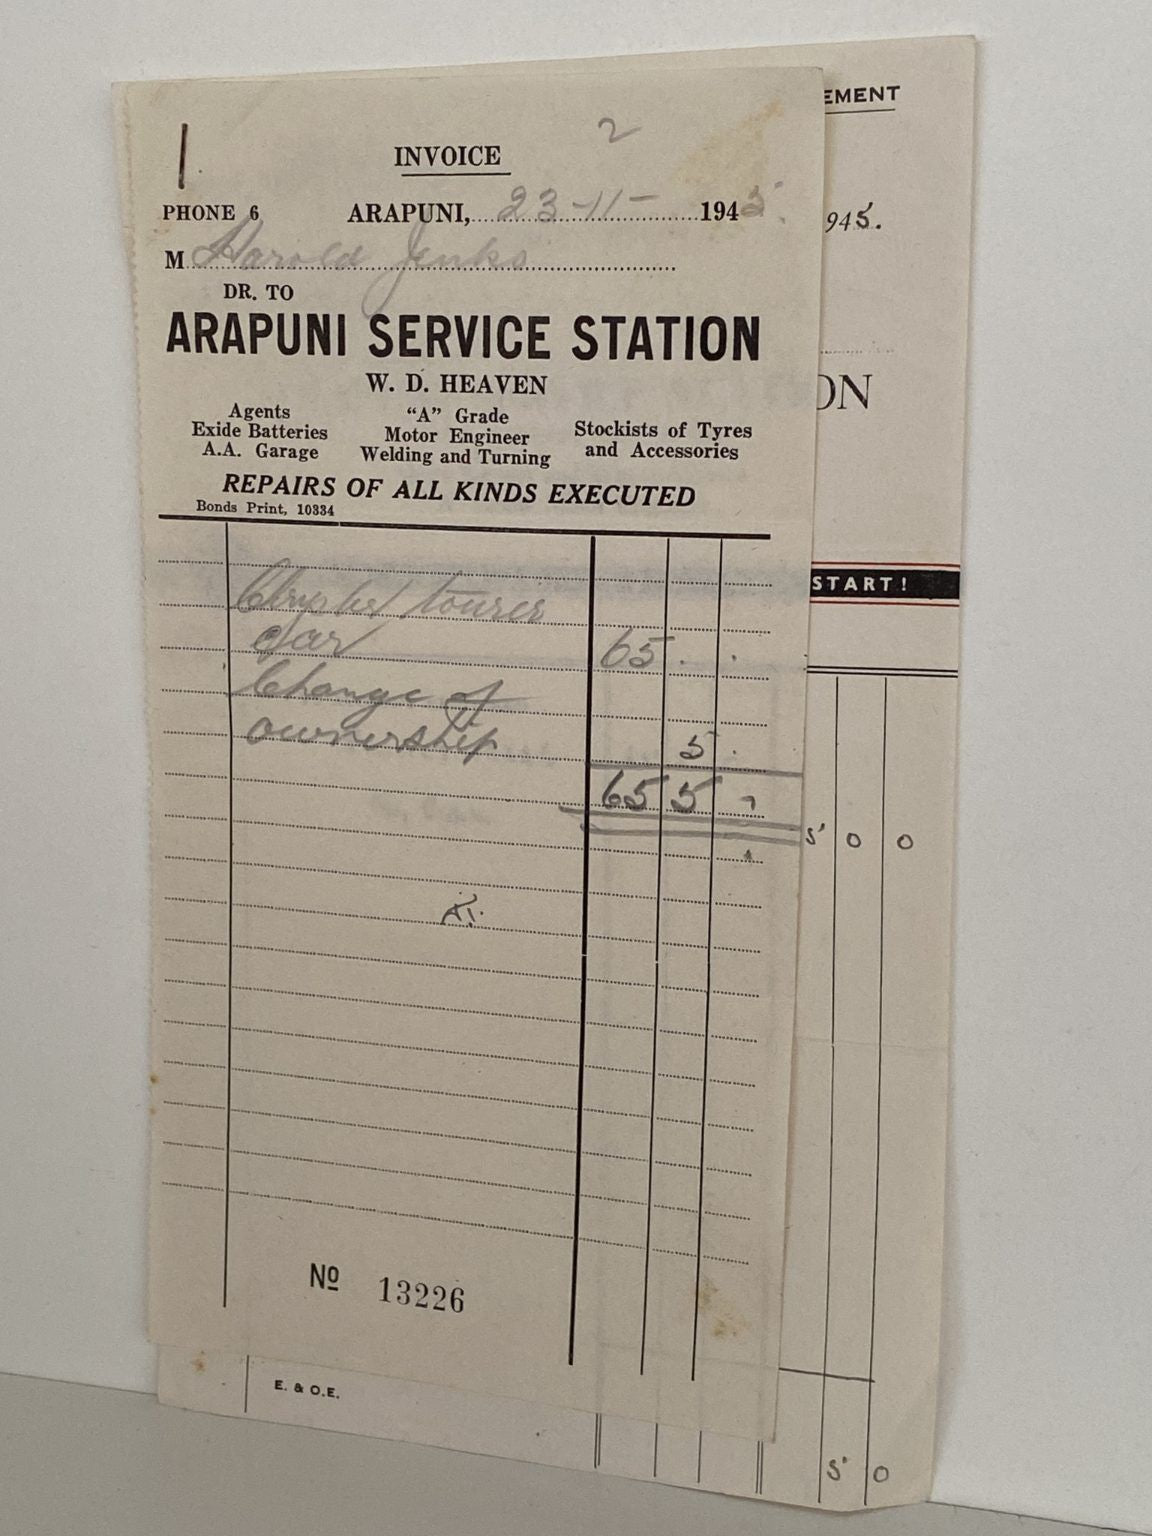 INVOICE
2
PHONE 6 ARAPUNI, 23-11- 1945.
M Harold Jenks
DR. TO
ARAPUNI SERVICE STATION
W. D. HEAVEN
Agents
Exide Batteries
A.A. Garage
"A" Grade
Motor Engineer
Welding and Turning
Stockists of Tyres
and Accessories
REPAIRS OF ALL KINDS EXECUTED
Bonds Print, 10334
tourer
Car 65 . .
Change of
ownership 5 .
65 5 -
No 13226
EMENT
945.
ON
START!
5 0 0
E. & O.E.
5 0